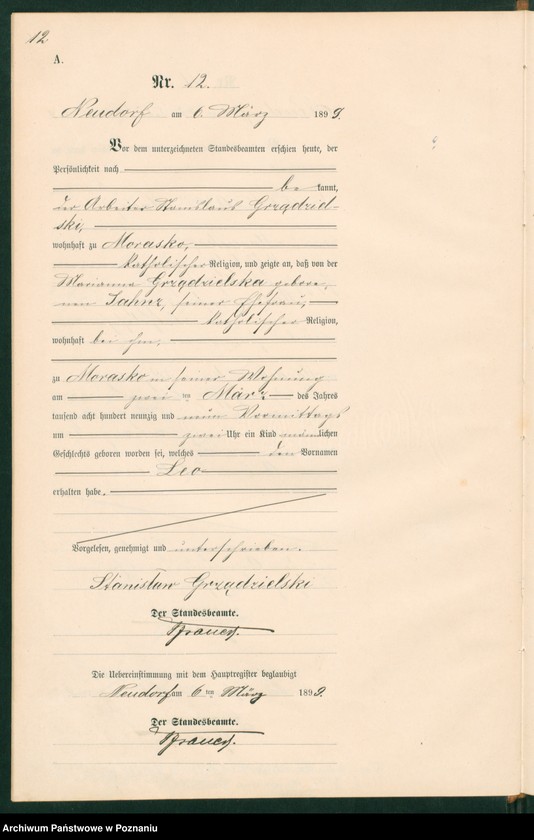 12
A.
Nr. 12.
Neudorf am 6. März 1899.
Vor dem unterzeichneten Standesbeamten erschien heute, der
Persönlichkeit nach
be kannt,
der Arbeiter Stanislaus Grządziel-
ski,
wohnhaft zu Morasko,
katholischer Religion, und zeigte an, daß von der
Marianna Grządzielska gebore-
nen Jahnz, seiner Ehefrau,
katholischer Religion,
wohnhaft bei ihm,
zu Morasko in seiner Wohnung
am zwei ten März des Jahres
tausend acht hundert neunzig und neun Vormittags
um zwei Uhr ein Kind männlichen
Geschlechts geboren worden sei, welches den Vornamen
Leo
erhalten habe.
Vorgelesen, genehmigt und unterschrieben.
Stanisław Grządzielski
Der Standesbeamte.
Die Uebereinstimmung mit dem Hauptregister beglaubigt
Neudorf am 6 ten März 1899.
Der Standesbeamte.
Archiwum Państwowe w Poznaniu